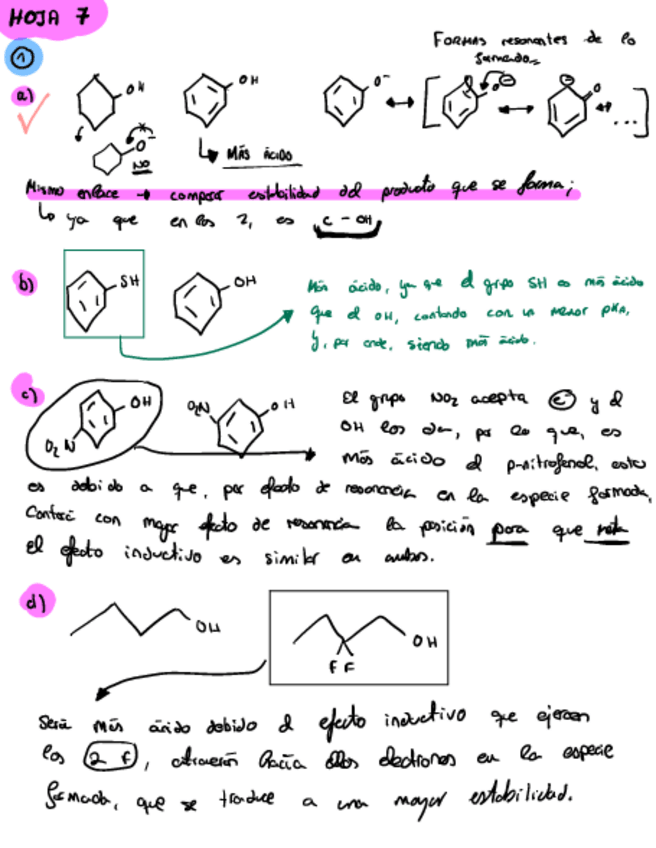 HOJA 7
①
FORMAS resonantes de lo formado
a)
OH
OH
O⁻
O ⊖
⊖ O
...
O⁻
NO
MÁS ÁCIDO
Mismo enlace → comparar estabilidad del producto que se forma;
ya que en los 2, es C-OH
b)
SH
OH
Más ácido, ya que el grupo SH es más ácido
que el OH, contando con un menor pKA,
y, por ende, siendo más ácido.
c)
OH
O₂N
O₂N
OH
El grupo NO₂ acepta e⁻ y el
OH los da, por lo que, es
más ácido el p-nitrofenol, esto
es debido a que, por efecto de resonancia en la especie formada,
Contará con mayor efecto de resonancia la posición para que meta
El efecto inductivo es similar en ambos.
d)
OH
OH
F F
Será más ácido debido al efecto inductivo que ejercen
los 2 F, atraerán hacia ellos electrones en la especie
formada, que se traduce a una mayor estabilidad.